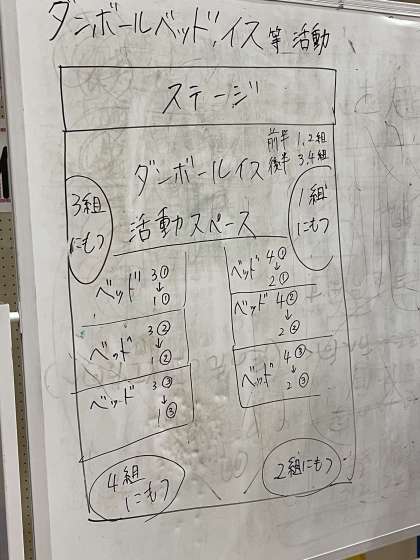 ダンボールベッド,イス等活動
ステージ
前半 1,2組
後半 3,4組
ダンボールイス
活動スペース
3組
にもつ
1組
にもつ
ベッド 3①
↓
1①
ベッド 3②
↓
1②
ベッド 3③
↓
1③
ベッド 4①
↓
2①
ベッド 4②
↓
2②
ベッド 4③
↓
2③
4組
にもつ
2組にもつ